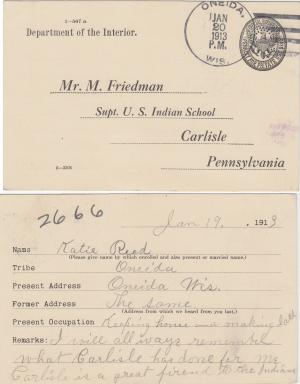 1-567 a
Department of the Interior.
ONEIDA,
JAN
20
1913
P.M.
WIS.
PENALTY FOR PRIVATE USE
Mr. M. Friedman
Supt. U. S. Indian School
Carlisle
Pennsylvania
2666
Jan 19, 1913
Name Katie Reed
(Please give name by which enrolled and also present or married name.)
Tribe Oneida
Present Address Oneida Wis.
Former Address The same
(Address from which we heard from you last.)
Present Occupation Keeping house and making
Remarks: I will allways remember
what Carlisle has done for me
Carlisle is a great friend to the Indians